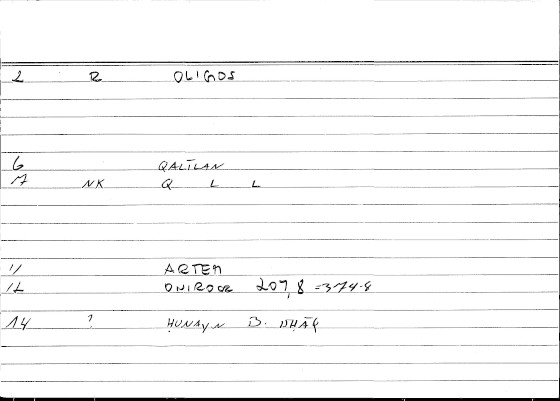 2 R OLIGOS
6 QALĪLAN
7 NK Q L L
11 ARTEM
12 ONIROCR 207,8 = 374.8
14 ? ḤUNAYN B. ISḤĀQ